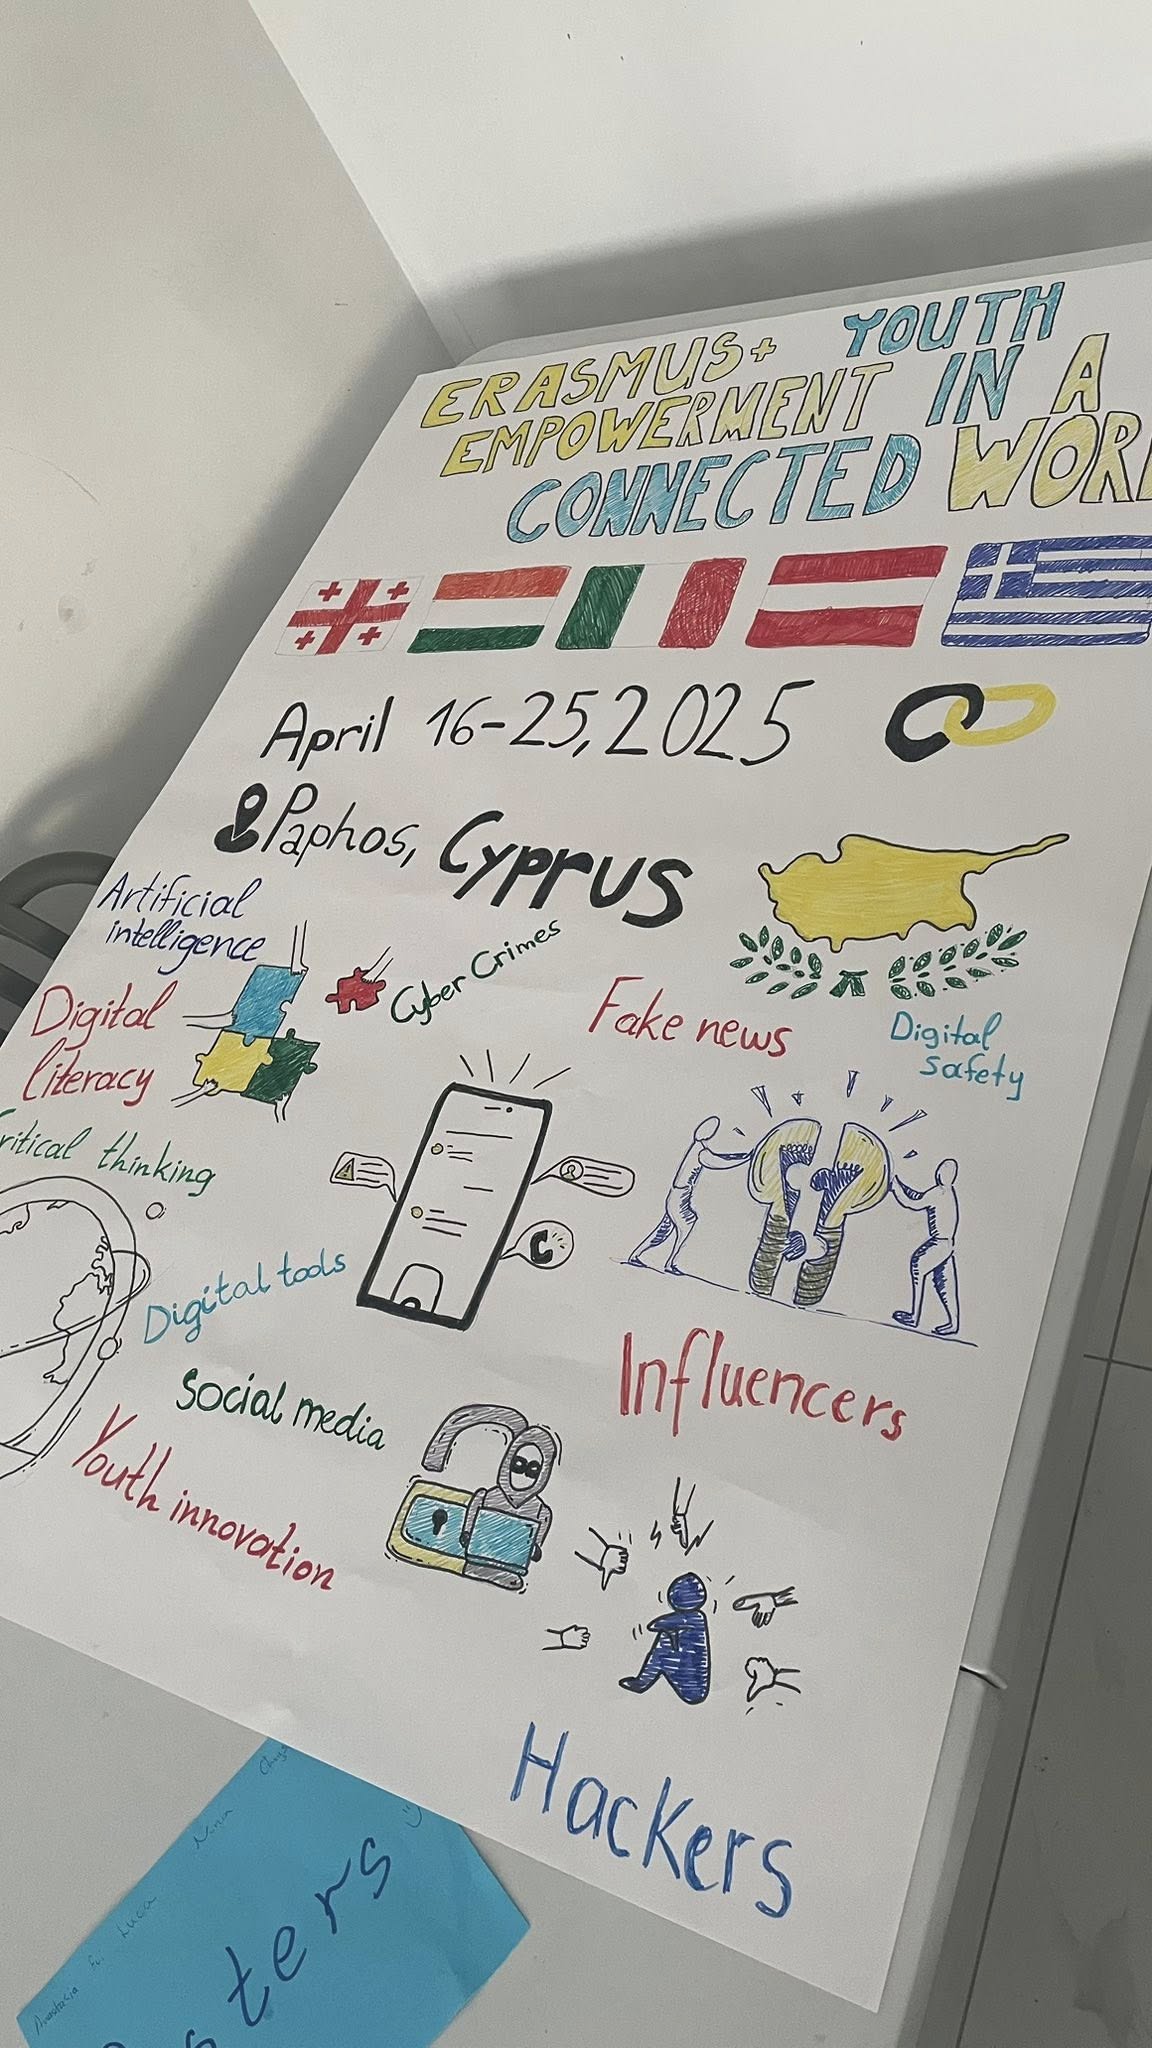 ERASMUS+ YOUTH
EMPOWERMENT IN A
CONNECTED WORL
April 16-25, 2025
Paphos, Cyprus
Artificial
intelligence
Cyber Crimes
Digital
literacy
Fake news
Digital
safety
ritical thinking
Digital tools
Social media
Influencers
Youth innovation
Hackers
Nina
Luca
Anastasia
sters